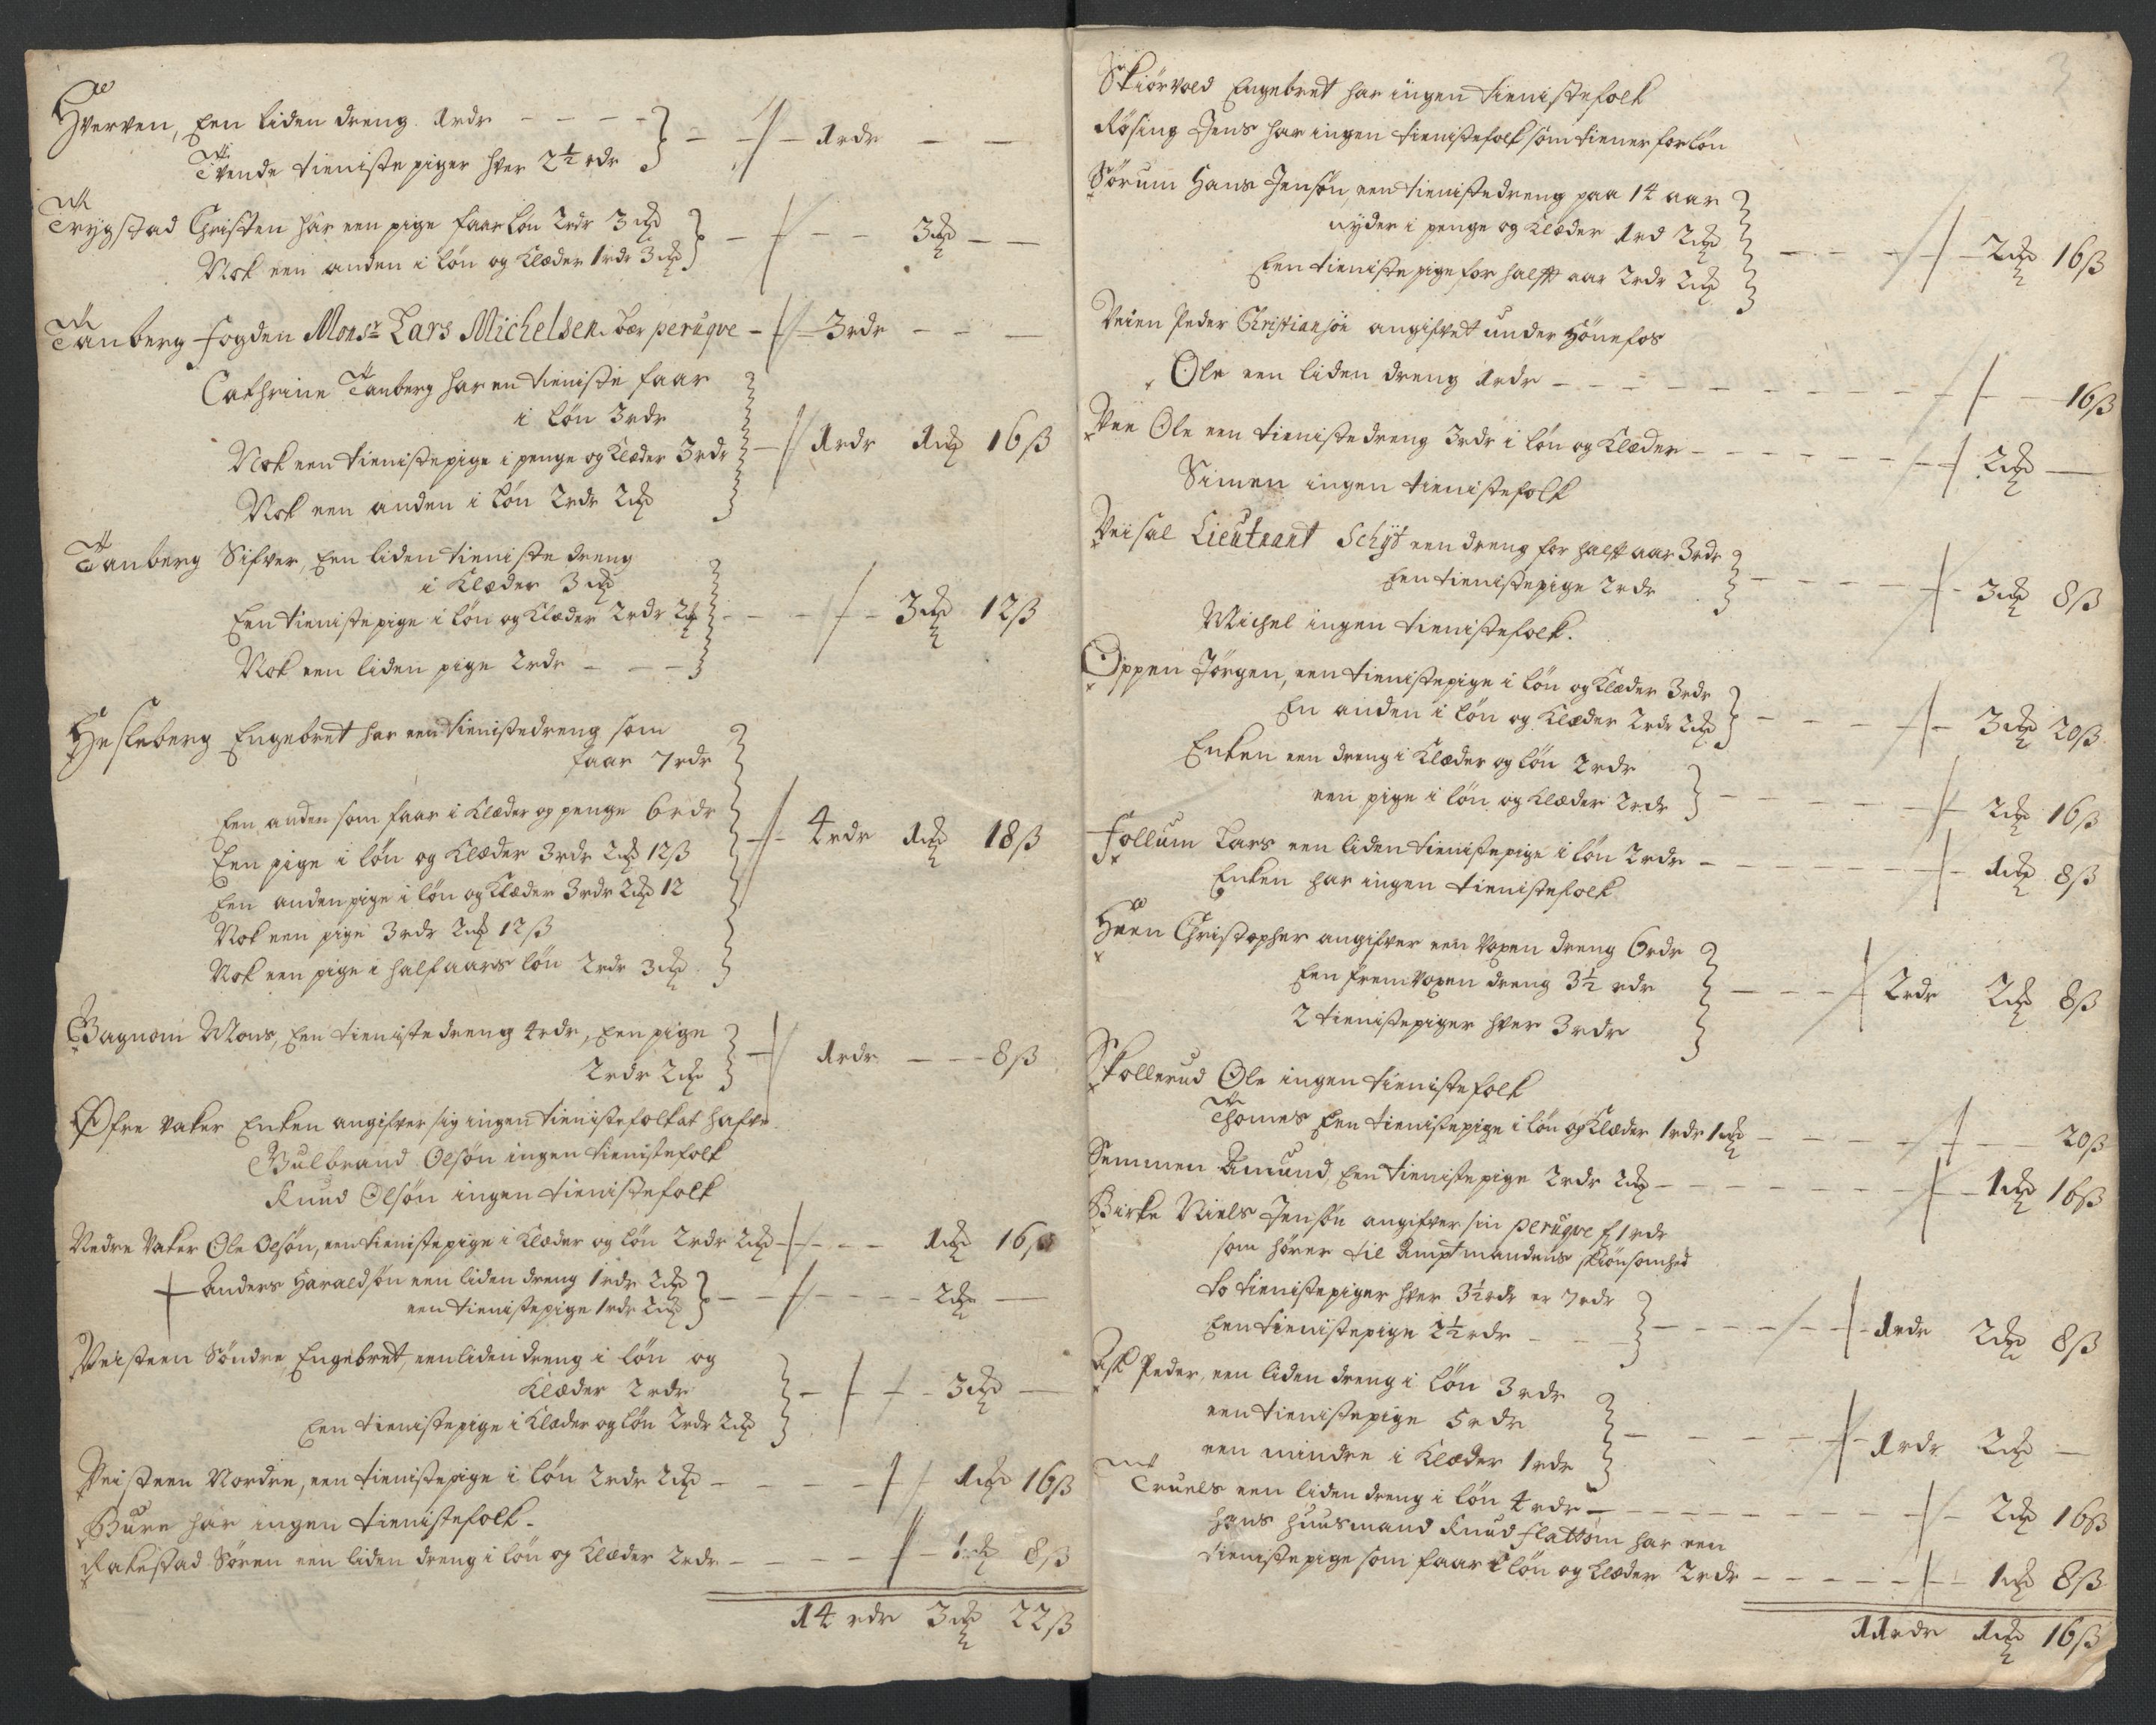 Hverven, Een liden dreng 1 rdr
Tvende tieniste piger hver 2½ rdr — 1 rdr
Trygstad Christen har een pige faar løn 2 rdr 3 mk
Nok een anden i løn og Klæder 1 rdr 3 mk — 3 mk
Tanberg Fogden Monsr Lars Michelsen bær perúqve — 3 rdr
Cathrine Tanberg har en tieniste faar
i løn 3 rdr
Nok een tienistepige i penge og Klæder 3 rdr — 1 rdr 1 mk 16 ß
Nok een anden i løn 2 rdr 2 mk
Tanberg Sifver, Een liden tieniste dreng
i Klæder 3 mk
Een tienistepige i løn og Klæder 2 rdr 2 mk — 3 mk 12 ß
Nok een liden pige 2 rdr
Hesleberg Engebret har een tienistedreng som
faar 7 rdr
Een anden som faar i Klæder og penge 6 rdr
Een pige i løn og Klæder 3 rdr 2 mk 12 ß — 4 rdr 1 mk 18 ß
Een anden pige i løn og Klæder 3 rdr 2 mk 12
Nok een pige 3 rdr 2 mk 12 ß
Nok een pige i half aars løn 2 rdr 3 mk
Bagnom Mons, Een tienistedreng 4 rdr, Een pige
2 rdr 2 mk — 1 rdr — 8 ß
Øfre Vaker Enken angifver sig ingen tienistefolk at hafve
Gulbrand Olsøn ingen tienistefolk
Knud Olsøn ingen tienistefolk
Nedre Vaker Ole Olsøn, een tienistepige i Klæder og løn 2 rdr 2 mk — 1 mk 16 ß
Anders Haraldsøn een liden dreng 1 rdr 2 mk
een tienistepige 1 rdr 2 mk — 2 mk
Veisteen Søndre, Engebret, een liden dreng i løn og
Klæder 2 rdr — 3 mk
Een tienistepige i Klæder og løn 2 rdr 2 mk
Veisteen Nordre, een tienistepige i løn 2 rdr 2 mk — 1 mk 16 ß
Bure har ingen tienistefolk.
Rakestad Søren een liden dreng i løn og Klæder 2 rdr — 1 mk 8 ß
14 rdr 3 mk 22 ß
3
Skiørvold Engebret har ingen tienistefolk
Røsing Jens har ingen tienistefolk som tiener for løn
Sørum Hans Jensøn, een tienistedreng paa 14 aar
nyder i penge og Klæder 1 rd 2 mk — 2 mk 16 ß
Een tienistepige for halft aar 2 rdr 2 mk
Veien Peder Christiansøn angifvet under Hønefos
Ole een liden dreng 1 rdr — 16 ß
Vee Ole een tienistedreng 3 rdr i løn og Klæder — 2 mk
Simen ingen tienistefolk
Veisal Lieutnant Schÿt een dreng for halft aar 3 rdr
Een tienistepige 2 rdr — 3 mk 8 ß
Michel ingen tienistefolk.
Oppen Jørgen, een tienistepige i løn og Klæder 3 rdr
En anden i løn og Klæder 2 rdr 2 mk — 3 mk 20 ß
Enken een dreng i Klæder og løn 2 rdr
een pige i løn og Klæder 2 rdr — 2 mk 16 ß
Follum Lars een liden tienistepige i løn 2 rdr — 1 mk 8 ß
Enken har ingen tienistefolk
Hven Christopher angifver een voxen dreng 6 rdr
Een fremvoxen dreng 3½ rdr — 2 rdr 2 mk 8 ß
2 tienistepiger hver 3 rdr
Skollerud Ole ingen tienistefolk
Thomes Een tienistepige i løn og Klæder 1 rdr 1 mk — 20 ß
Semmen Amund, Een tienistepige 2 rdr 2 mk — 1 mk 16 ß
Birke Niels Jensøn angifver sin perúqve 1 rdr
som hører til Amptmandens skiønsomhed
to tienistepiger hver 3½ rdr er 7 rdr
Een tienistepige 2½ rdr — 1 rdr 2 mk 8 ß
Ask Peder, een liden dreng i løn 3 rdr
een tienistepige 5 rdr — 1 rdr 2 mk
een mindre i Klæder 1 rdr
Truels een liden dreng i løn 4 rdr — 2 mk 16 ß
hans Huusmand Knud Flattom har een
tienistepige som faar i løn og Klæder 2 rdr — 1 mk 8 ß
11 rdr 1 mk 16 ß